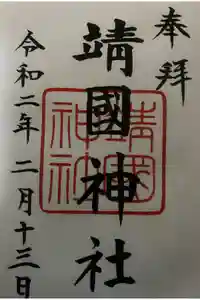 奉拝
靖國神社
靖國
神社
令和二年 二月十三日